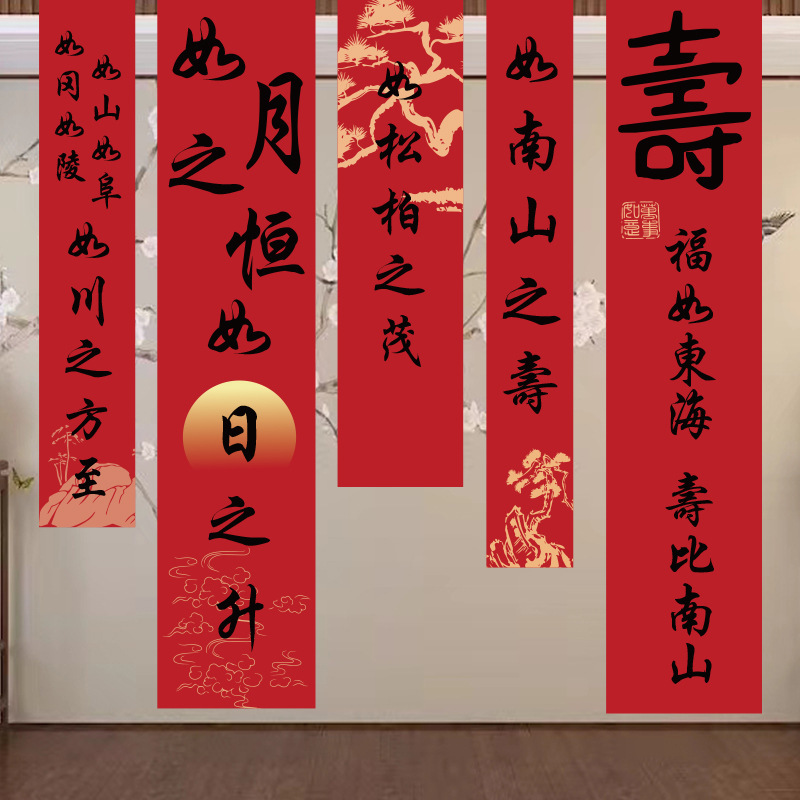 壽
萬事
如意
福如東海 壽比南山
如南山之壽
如松柏之茂
如月之恒
如日之升
如山如阜
如冈如陵
如川之方至